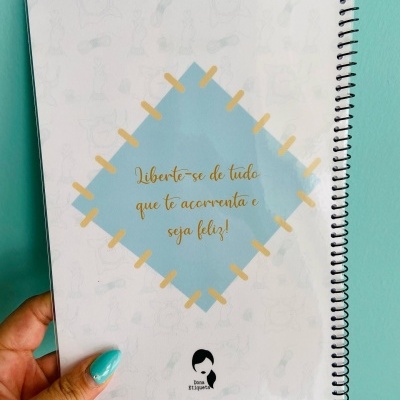 Liberte-se de tudo
que te acorrenta e
seja feliz!
Dona
Etiqueta